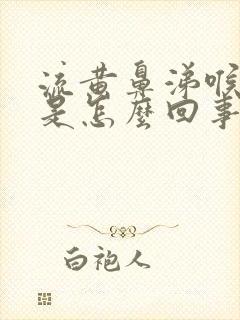 流黄鼻涕喉
是怎麽回事
白袍人